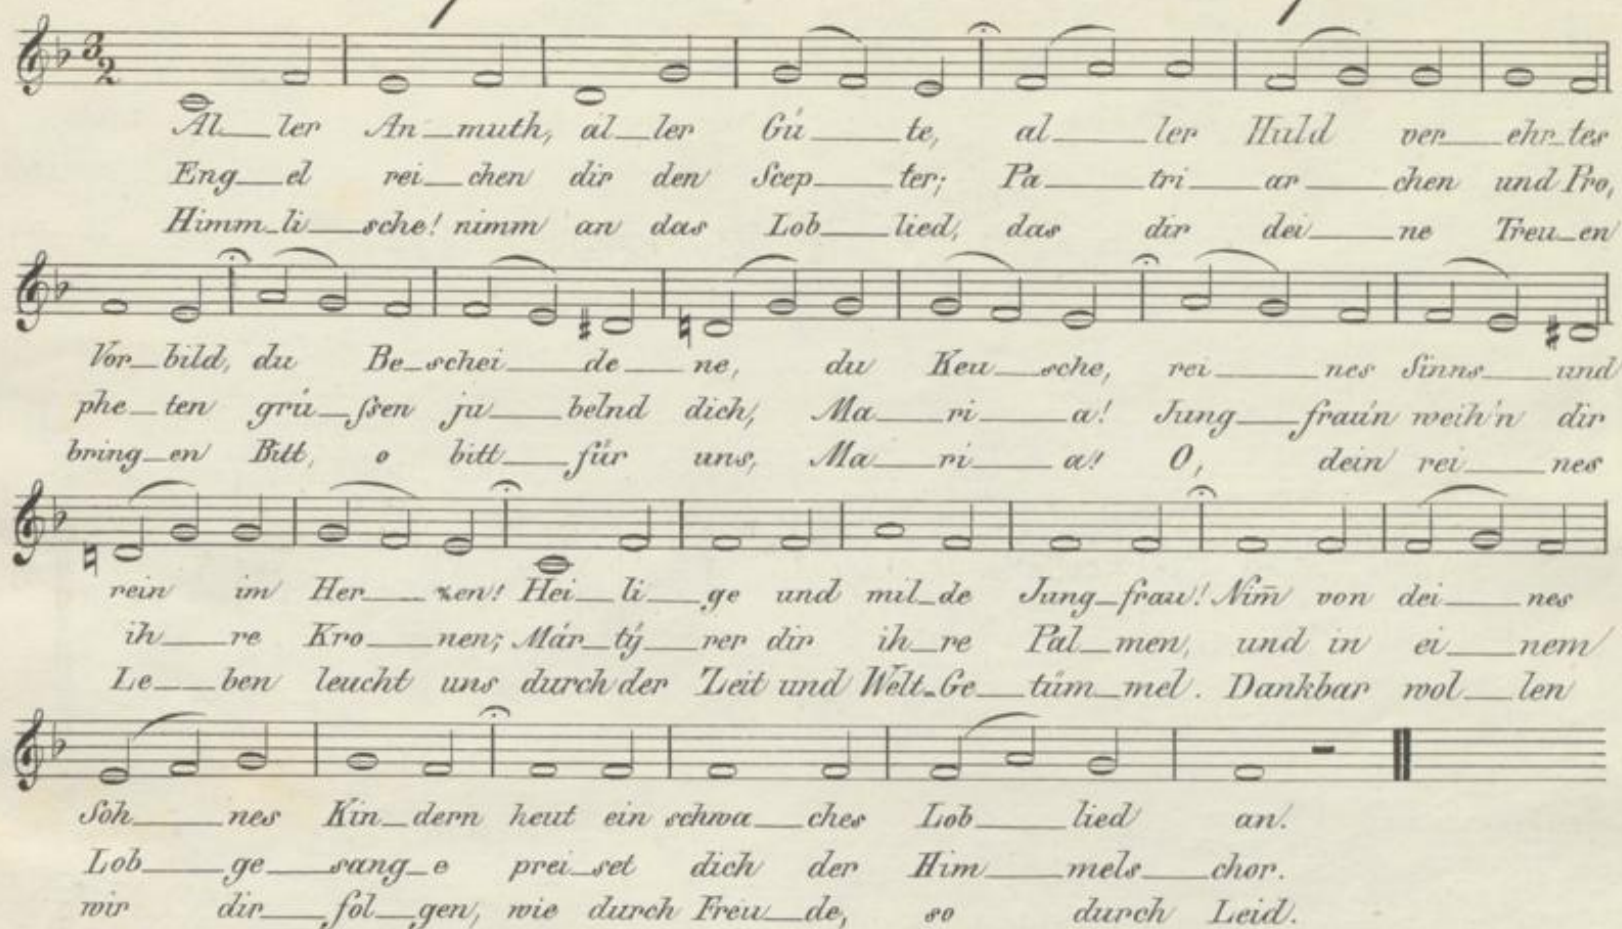 3 2
Al__ler An_muth, al_ler Gü__te, al__ler Huld ver__ehr_tes
Eng__el rei__chen dir den Scep__ter; Pa__tri__ar__chen und Pro,
Himm_li__sche! nimm an das Lob__lied, das dir dei__ne Treu_en
Vor_bild, du Be_schei__de__ne, du Keu__sche, rei__nes Sinns__und
phe_ten grü_ſsen ju__belnd dich, Ma__ri__a! Jung__fraün weih'n dir
bring_en Bitt, o bitt__für uns, Ma__ri__a! O, dein rei__nes
rein im Her__zen! Hei__li__ge und mil_de Jung_frau! Nim̄ von dei__nes
ih__re Kro__nen; Mär_tÿ__rer dir ih_re Pal_men, und in ei__nem
Le__ben leucht uns durch der Zeit und Welt_Ge__tüm_mel. Dankbar wol__len
Soh__nes Kin_dern heut ein schwa__ches Lob__lied an.
Lob__ge__sang_e prei_set dich der Him__mels__chor.
wir dir__fol_gen, wie durch Freu__de, so durch Leid.